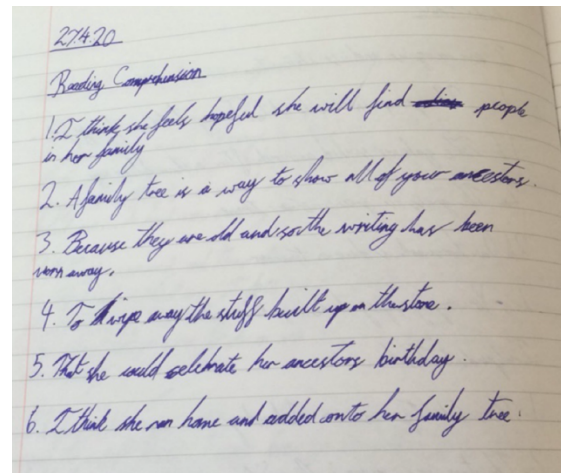 27.4.20
Reading Comprehension
1. I think she feels hopeful she will find people
in her family
2. A family tree is a way to show all of your ancestors.
3. Because they are old and so the writing has been
worn away.
4. To wipe away the stuff built up on the stone.
5. That she could celebrate her ancestors birthday.
6. I think she ran home and added onto her family tree.